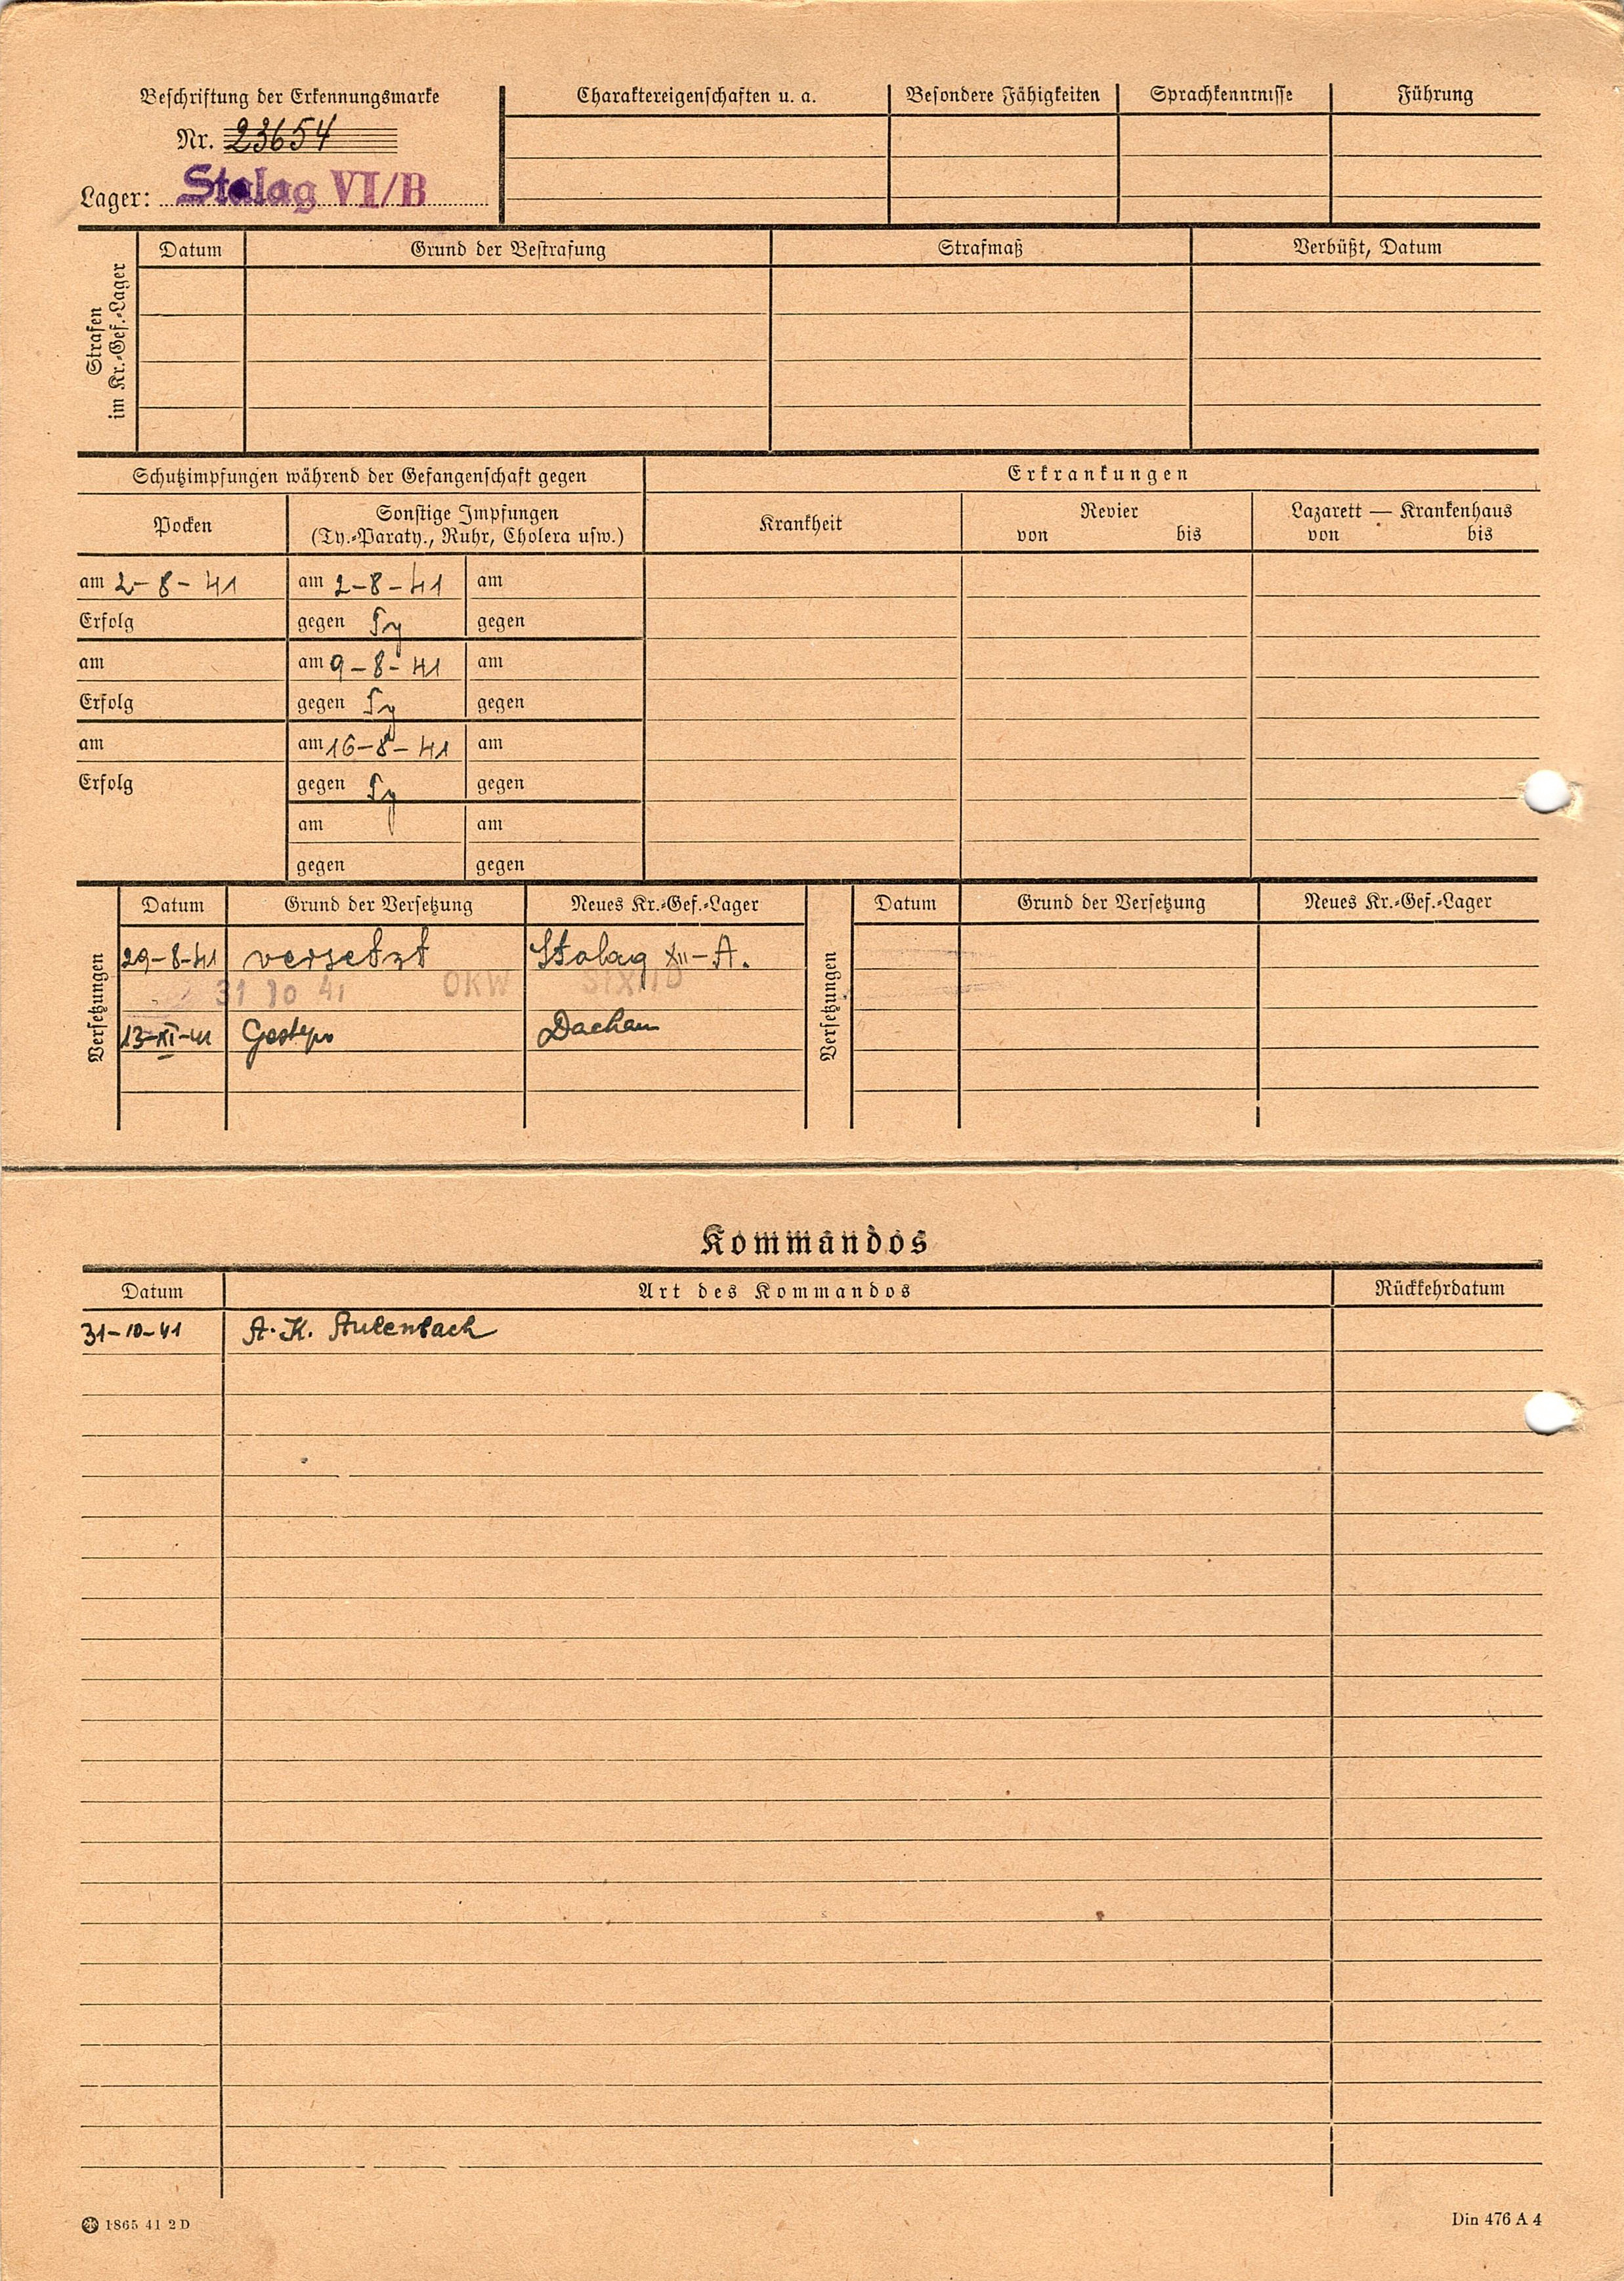 Beschriftung der Erkennungsmarke
Nr. 23654
Lager: Stalag VI/B
Charaktereigenschaften u. a.
Besondere Fähigkeiten
Sprachkenntnisse
Führung
Strafen
im Kr.-Gef.-Lager
Datum
Grund der Bestrafung
Strafmaß
Verbüßt, Datum
Schutzimpfungen während der Gefangenschaft gegen
Erkrankungen
Pocken
Sonstige Impfungen
(Ty.-Paraty., Ruhr, Cholera usw.)
Krankheit
Revier
von bis
Lazarett — Krankenhaus
von bis
am 2-8-41 am 2-8-41 am
Erfolg gegen Ty gegen
am am 9-8-41 am
Erfolg gegen Ty gegen
am am 16-8-41 am
Erfolg gegen Ty gegen
am am
gegen gegen
Versetzungen
Datum Grund der Versetzung Neues Kr.-Gef.-Lager
29-8-41 versetzt Stalag XII-A.
31 10 41 OKW St XII D
13-XI-41 Gestapo Dachau
Versetzungen
Datum Grund der Versetzung Neues Kr.-Gef.-Lager
Kommandos
Datum Art des Kommandos Rückkehrdatum
31-10-41 A.K. Aulenbach
1865 41 2 D
Din 476 A 4